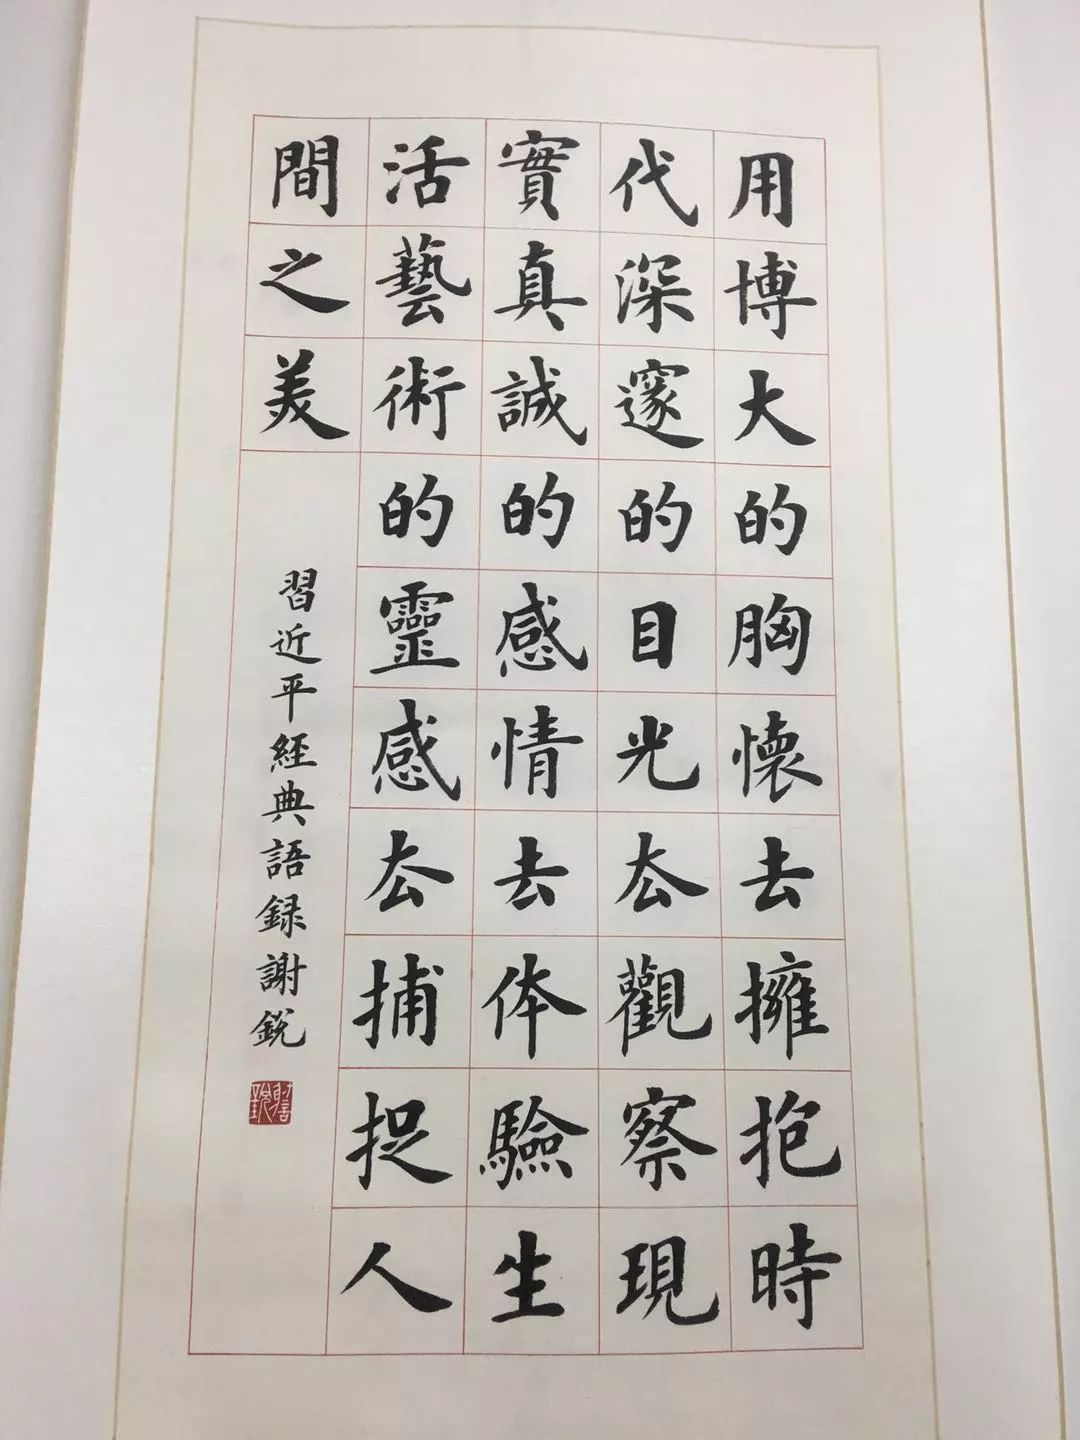 用博大的胸懷去擁抱時
代深邃的目光去觀察現
實真誠的感情去体驗生
活藝術的靈感去捕捉人
間之美
習近平經典語録謝銳
謝銳